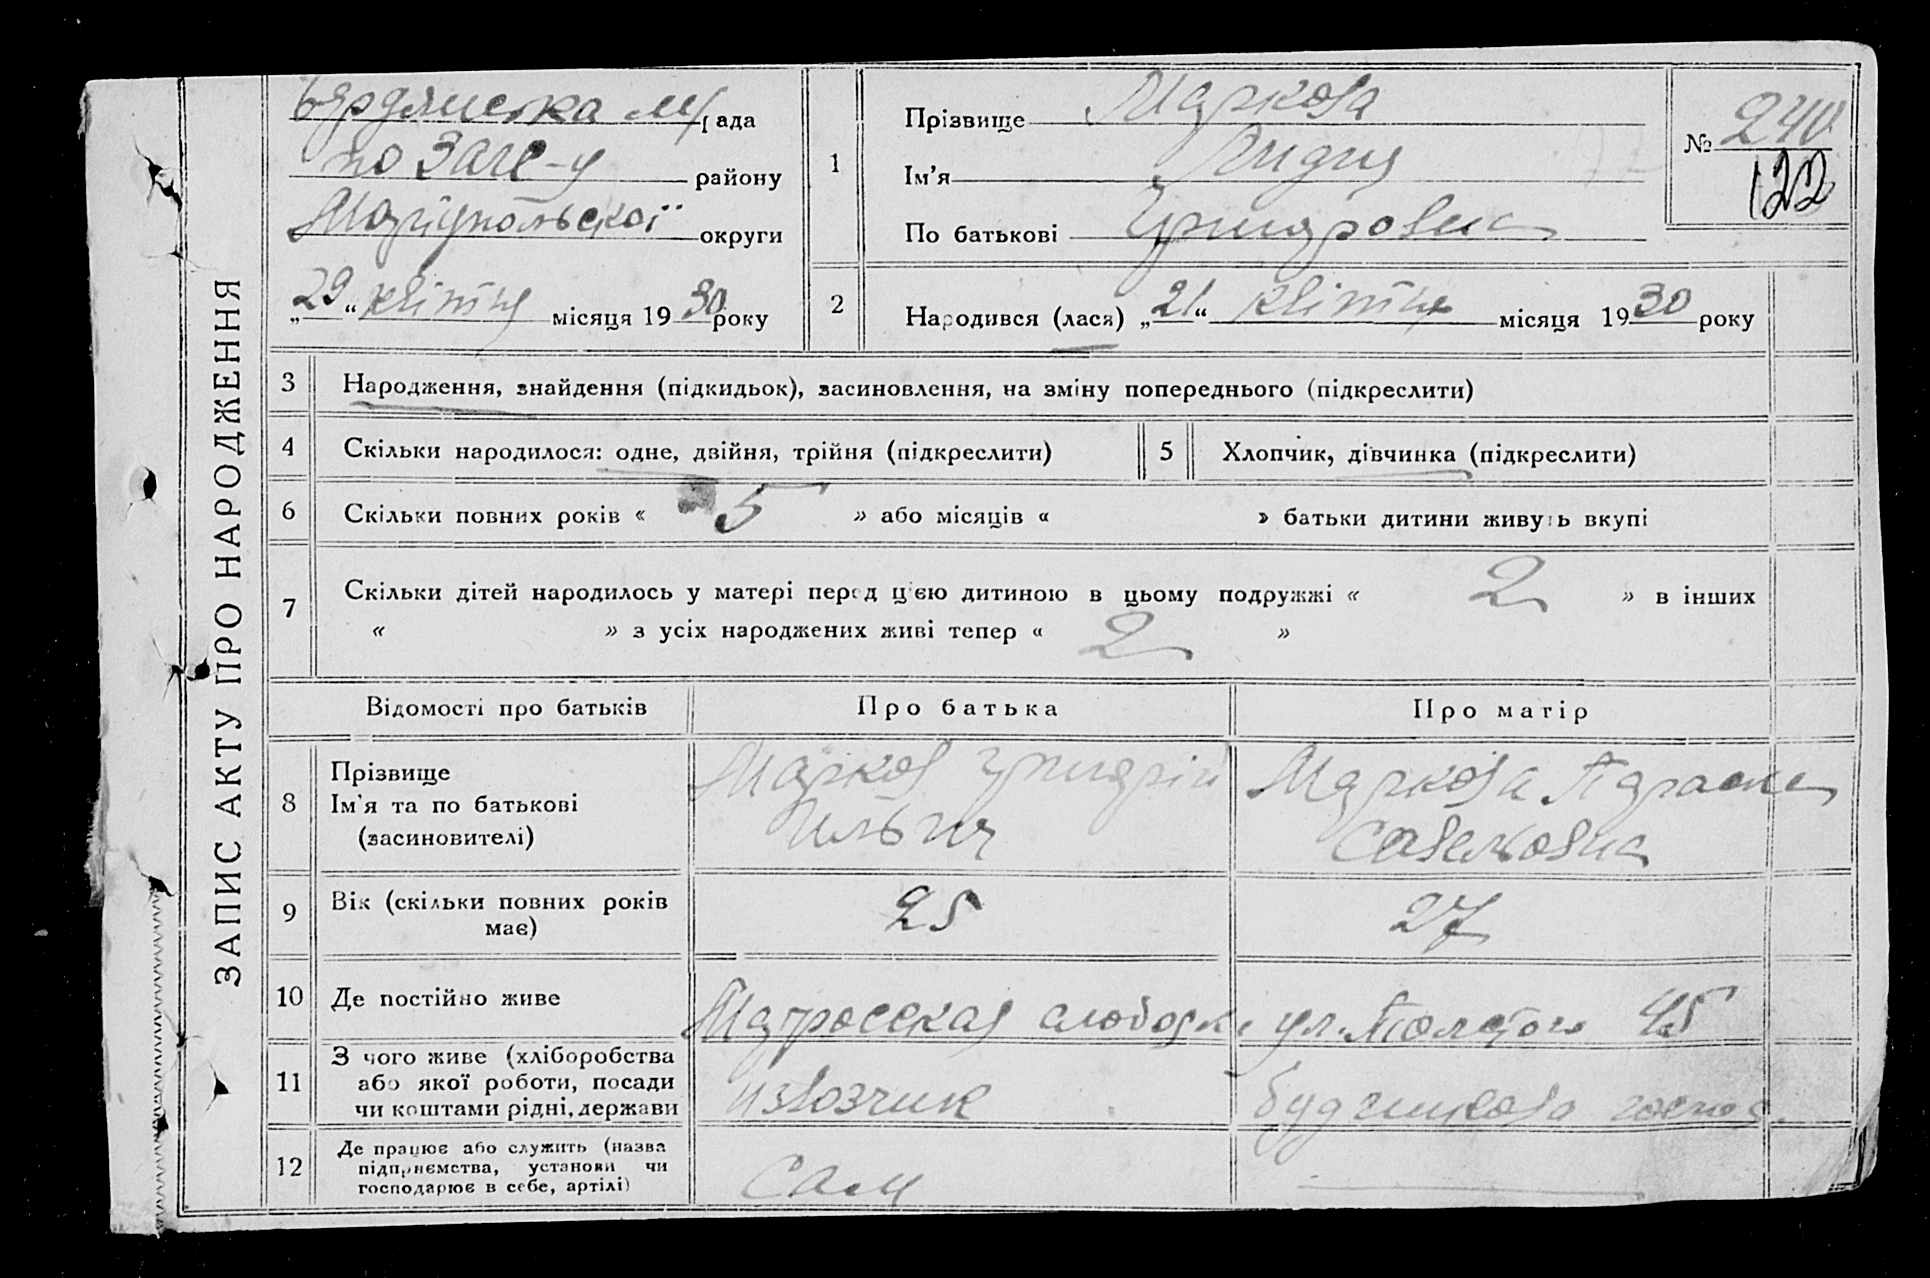 ЗАПИС АКТУ ПРО НАРОДЖЕННЯ
Бердянська м/рада
по ЗАГС-у району
Маріупольської округи
„29“ квітня місяця 1930 року
1
Прізвище Маркова
Ім'я Лидия
По батькові Григоровна
№ 240
122
2
Народився (лася) „21“ квітня місяця 1930 року
3 Народження, знайдення (підкидьок), засиновлення, на зміну попереднього (підкреслити)
4 Скільки народилося: одне, двійня, трійня (підкреслити)
5 Хлопчик, дівчинка (підкреслити)
6 Скільки повних років « 5 » або місяців « » батьки дитини живуть вкупі
7 Скільки дітей народилось у матері перед цією дитиною в цьому подружжі « 2 » в інших
« » з усіх народжених живі тепер « 2 »
Відомості про батьків Про батька Про матір
8 Прізвище
Ім'я та по батькові
(засиновителі)
Марков Григорій
Ильич
Маркова Параска
Савельовна
9 Вік (скільки повних років
має)
25 27
10 Де постійно живе Матросская слободка ул. Толстого 45
11 З чого живе (хліборобства
або якої роботи, посади
чи коштами рідні, держави
извозчик
12 Де працює або служить (назва
підприємства, установи чи
господарює в себе, артілі)
сам